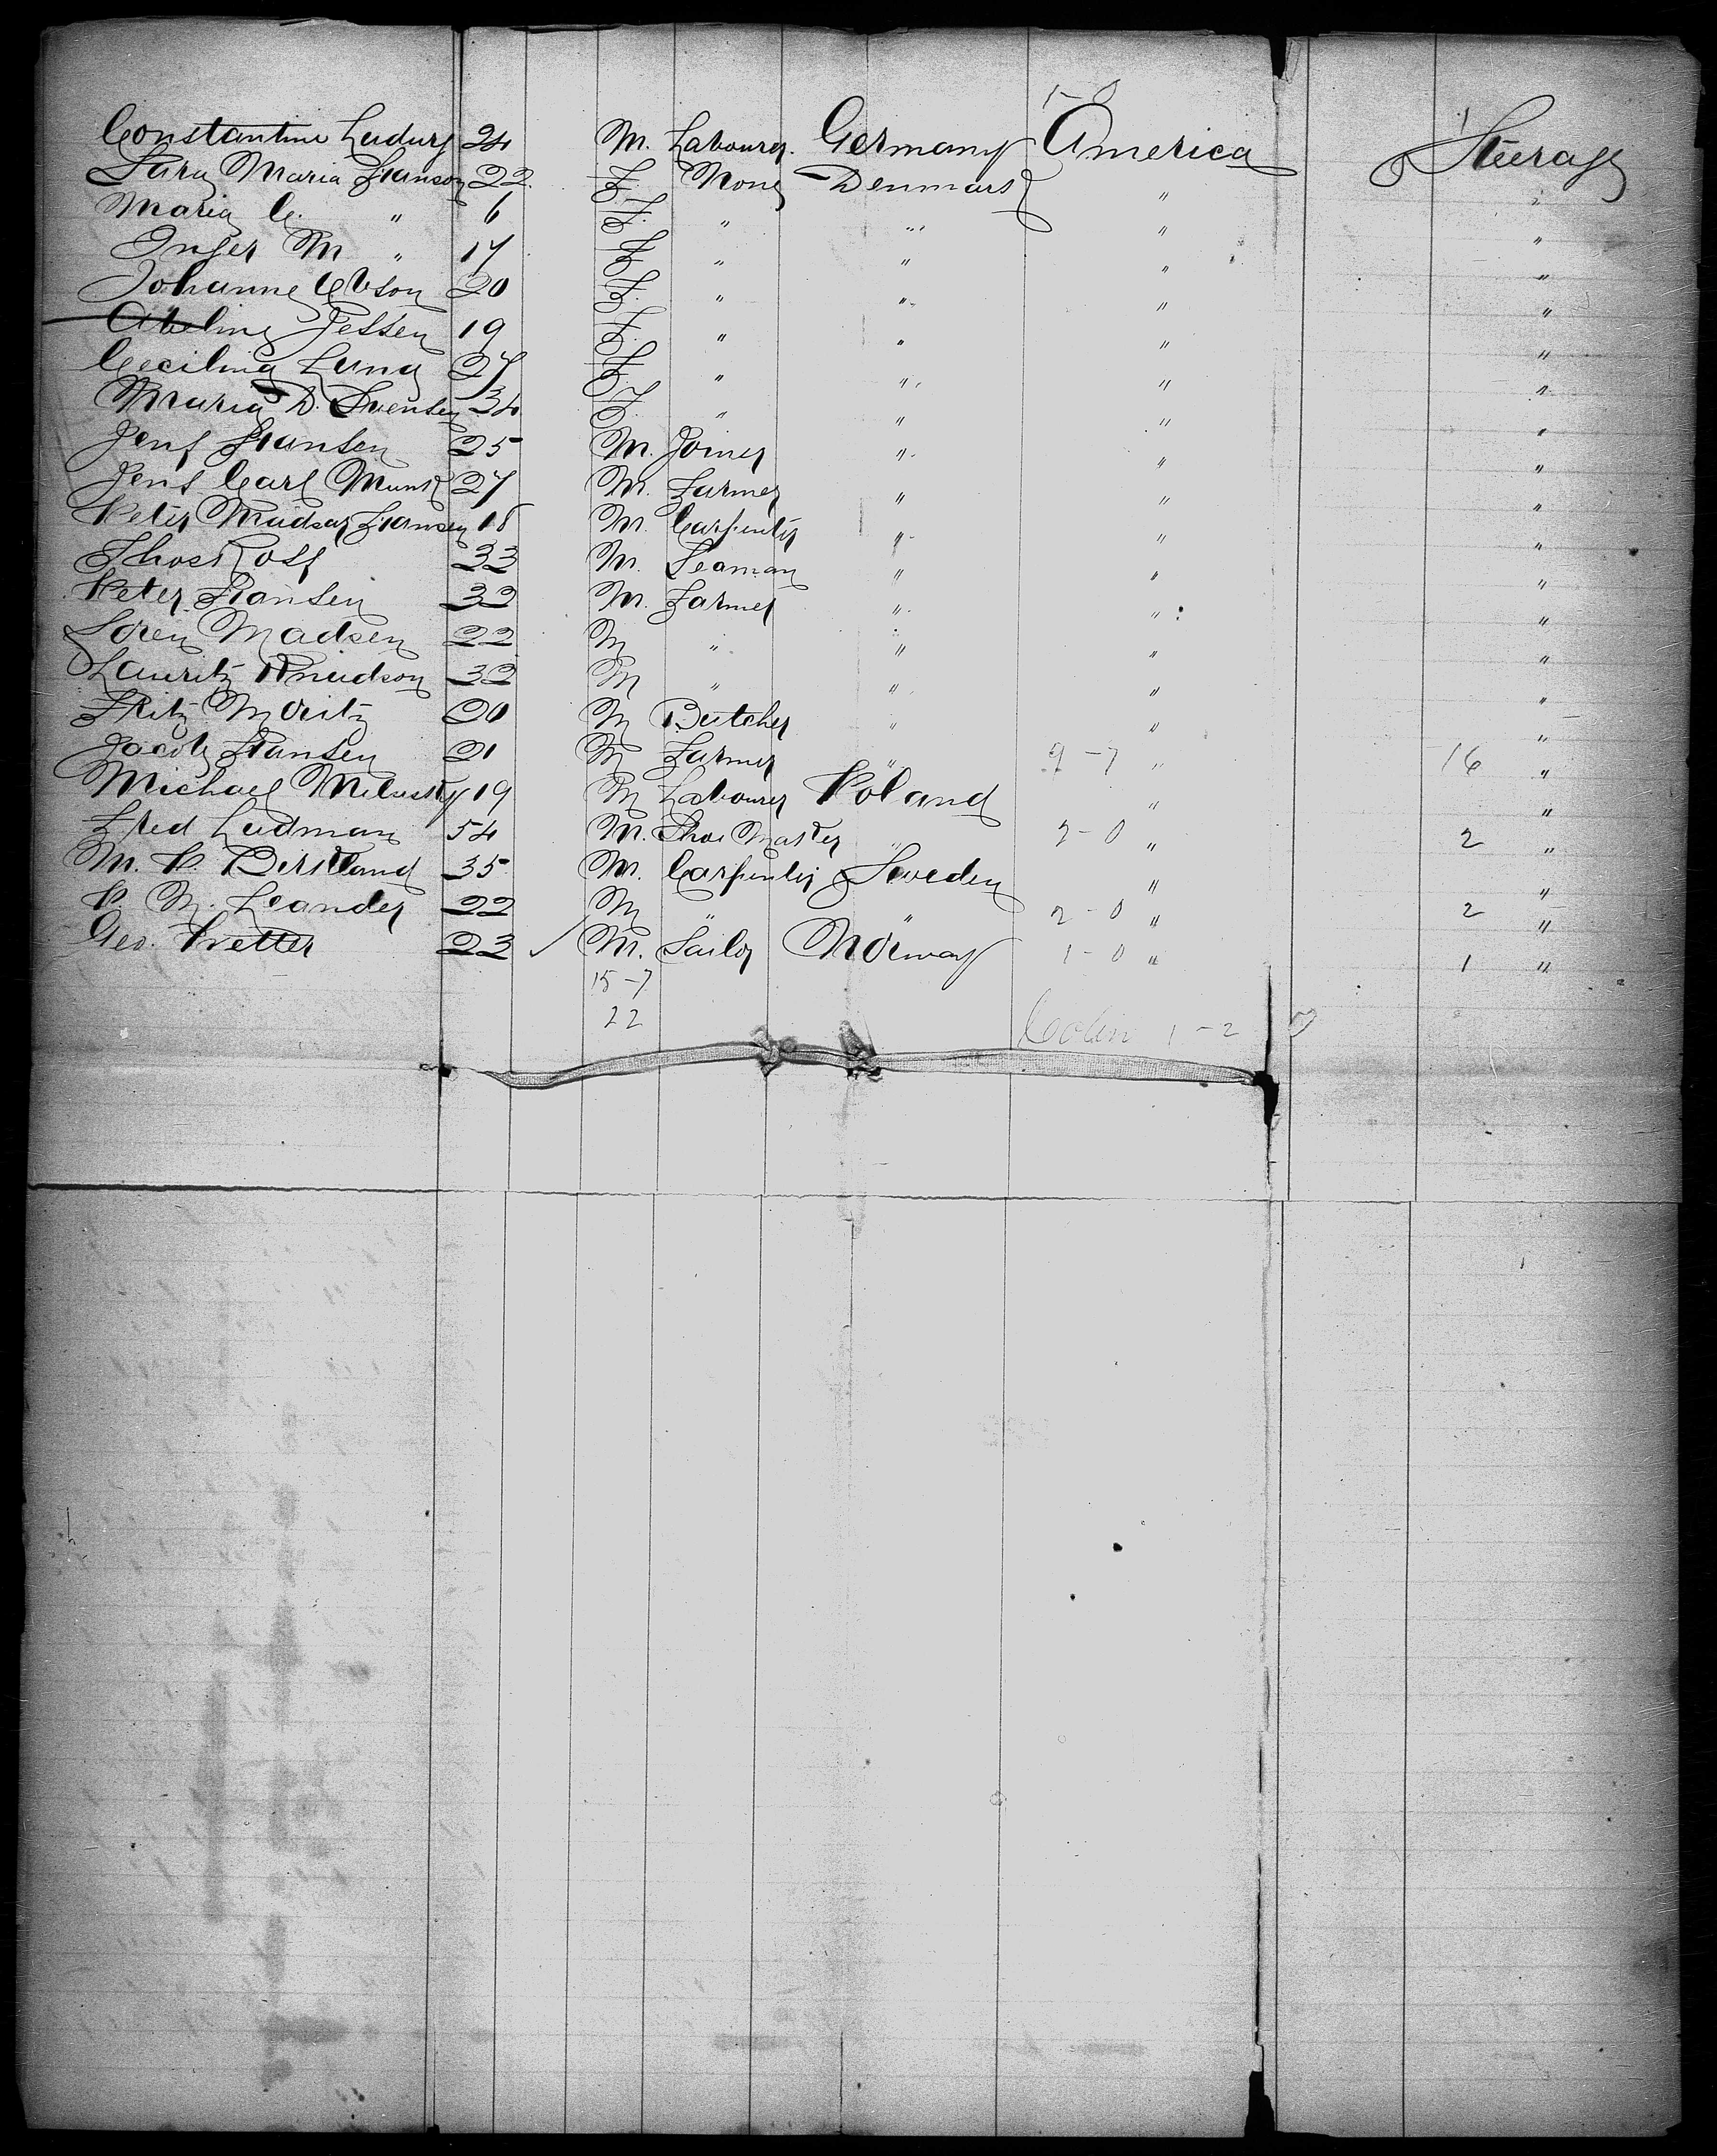 1-0
Constantine Ludwig 24 M. Labourer. Germany America 1 Steerage
Sara Maria Hanson 22. F. None Denmark " "
Maria C. " 6 F. " " " "
Inger M " 17 F " " " "
Johanne Ebson 20 F. " " " "
Abeline Jessen 19 F. " " " "
Cecilina Lund 27 F. " " " "
Maria D. Svensen 34 F. " " " "
Jens Hansen 25 M. Joiner " " "
Jens Carl Munk 27 M. Farmer " " "
Peter Madsen Hansen 18 M. Carpenter " " "
Thos Ross 33 M. Seaman " " "
Peter Hansen 32 M. Farmer " " "
Soren Madsen 22 M " " " "
Lauritz Knudson 32 M " " " "
Fritz Moritz 20 M Butcher " " "
Jacob Hansen 21 M Farmer " 9-7 " 16 "
Michael 19 M Labourer Poland " "
Fred Ludman 54 M. Shoe Maker " 2-0 " 2 "
M. P. Birkland 35 M. Carpenter Sweden " "
P. M. Leander 22 M " " 2-0 " 2 "
Geo. Vetter 23 M. Sailor Norway 1-0 " 1 "
15-7
22
1-2